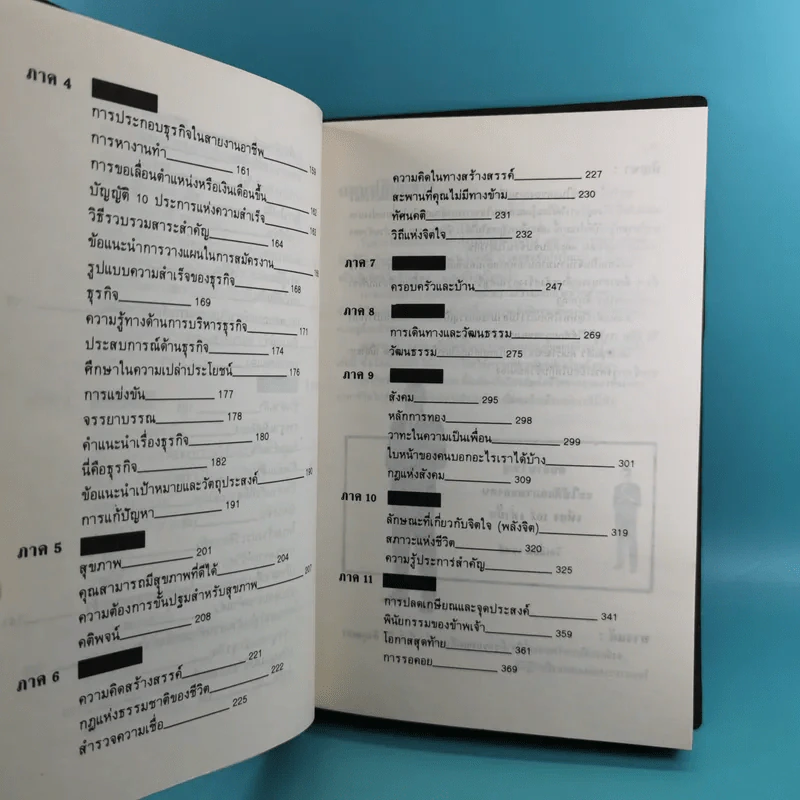 ภาค 4
การประกอบธุรกิจในสายงานอาชีพ 159
การหางานทำ 161
การขอเลื่อนตำแหน่งหรือเงินเดือนขึ้น 162
บัญญัติ 10 ประการแห่งความสำเร็จ 162
วิธีรวบรวมสาระสำคัญ 164
ข้อแนะนำการวางแผนในการสมัครงาน
รูปแบบความสำเร็จของธุรกิจ 168
ธุรกิจ 169
ความรู้ทางด้านการบริหารธุรกิจ 171
ประสบการณ์ด้านธุรกิจ 174
ศึกษาในความเปล่าประโยชน์ 176
การแข่งขัน 177
จรรยาบรรณ 178
คำแนะนำเรื่องธุรกิจ 180
นี่คือธุรกิจ 182
ข้อแนะนำเป้าหมายและวัตถุประสงค์ 190
การแก้ปัญหา 191
ภาค 5
สุขภาพ 201
คุณสามารถมีสุขภาพที่ดีได้ 204
ความต้องการขั้นปฐมสำหรับสุขภาพ 207
คติพจน์ 208
ภาค 6
ความคิดสร้างสรรค์ 221
กฎแห่งธรรมชาติของชีวิต 222
สำรวจความเชื่อ 225
ความคิดในทางสร้างสรรค์ 227
สะพานที่คุณไม่มีทางข้าม 230
ทัศนคติ 231
วิถีแห่งจิตใจ 232
ภาค 7
ครอบครัวและบ้าน 247
ภาค 8
การเดินทางและวัฒนธรรม 269
วัฒนธรรม 275
ภาค 9
สังคม 295
หลักการทอง 298
วาทะในความเป็นเพื่อน 299
ใบหน้าของคนบอกอะไรเราได้บ้าง 301
กฎแห่งสังคม 309
ภาค 10
ลักษณะที่เกี่ยวกับจิตใจ (พลังจิต) 319
สภาวะแห่งชีวิต 320
ความรู้ประการสำคัญ 325
ภาค 11
การปลดเกษียณและจุดประสงค์ 341
พินัยกรรมของข้าพเจ้า 359
โอกาสสุดท้าย 361
การรอคอย 369